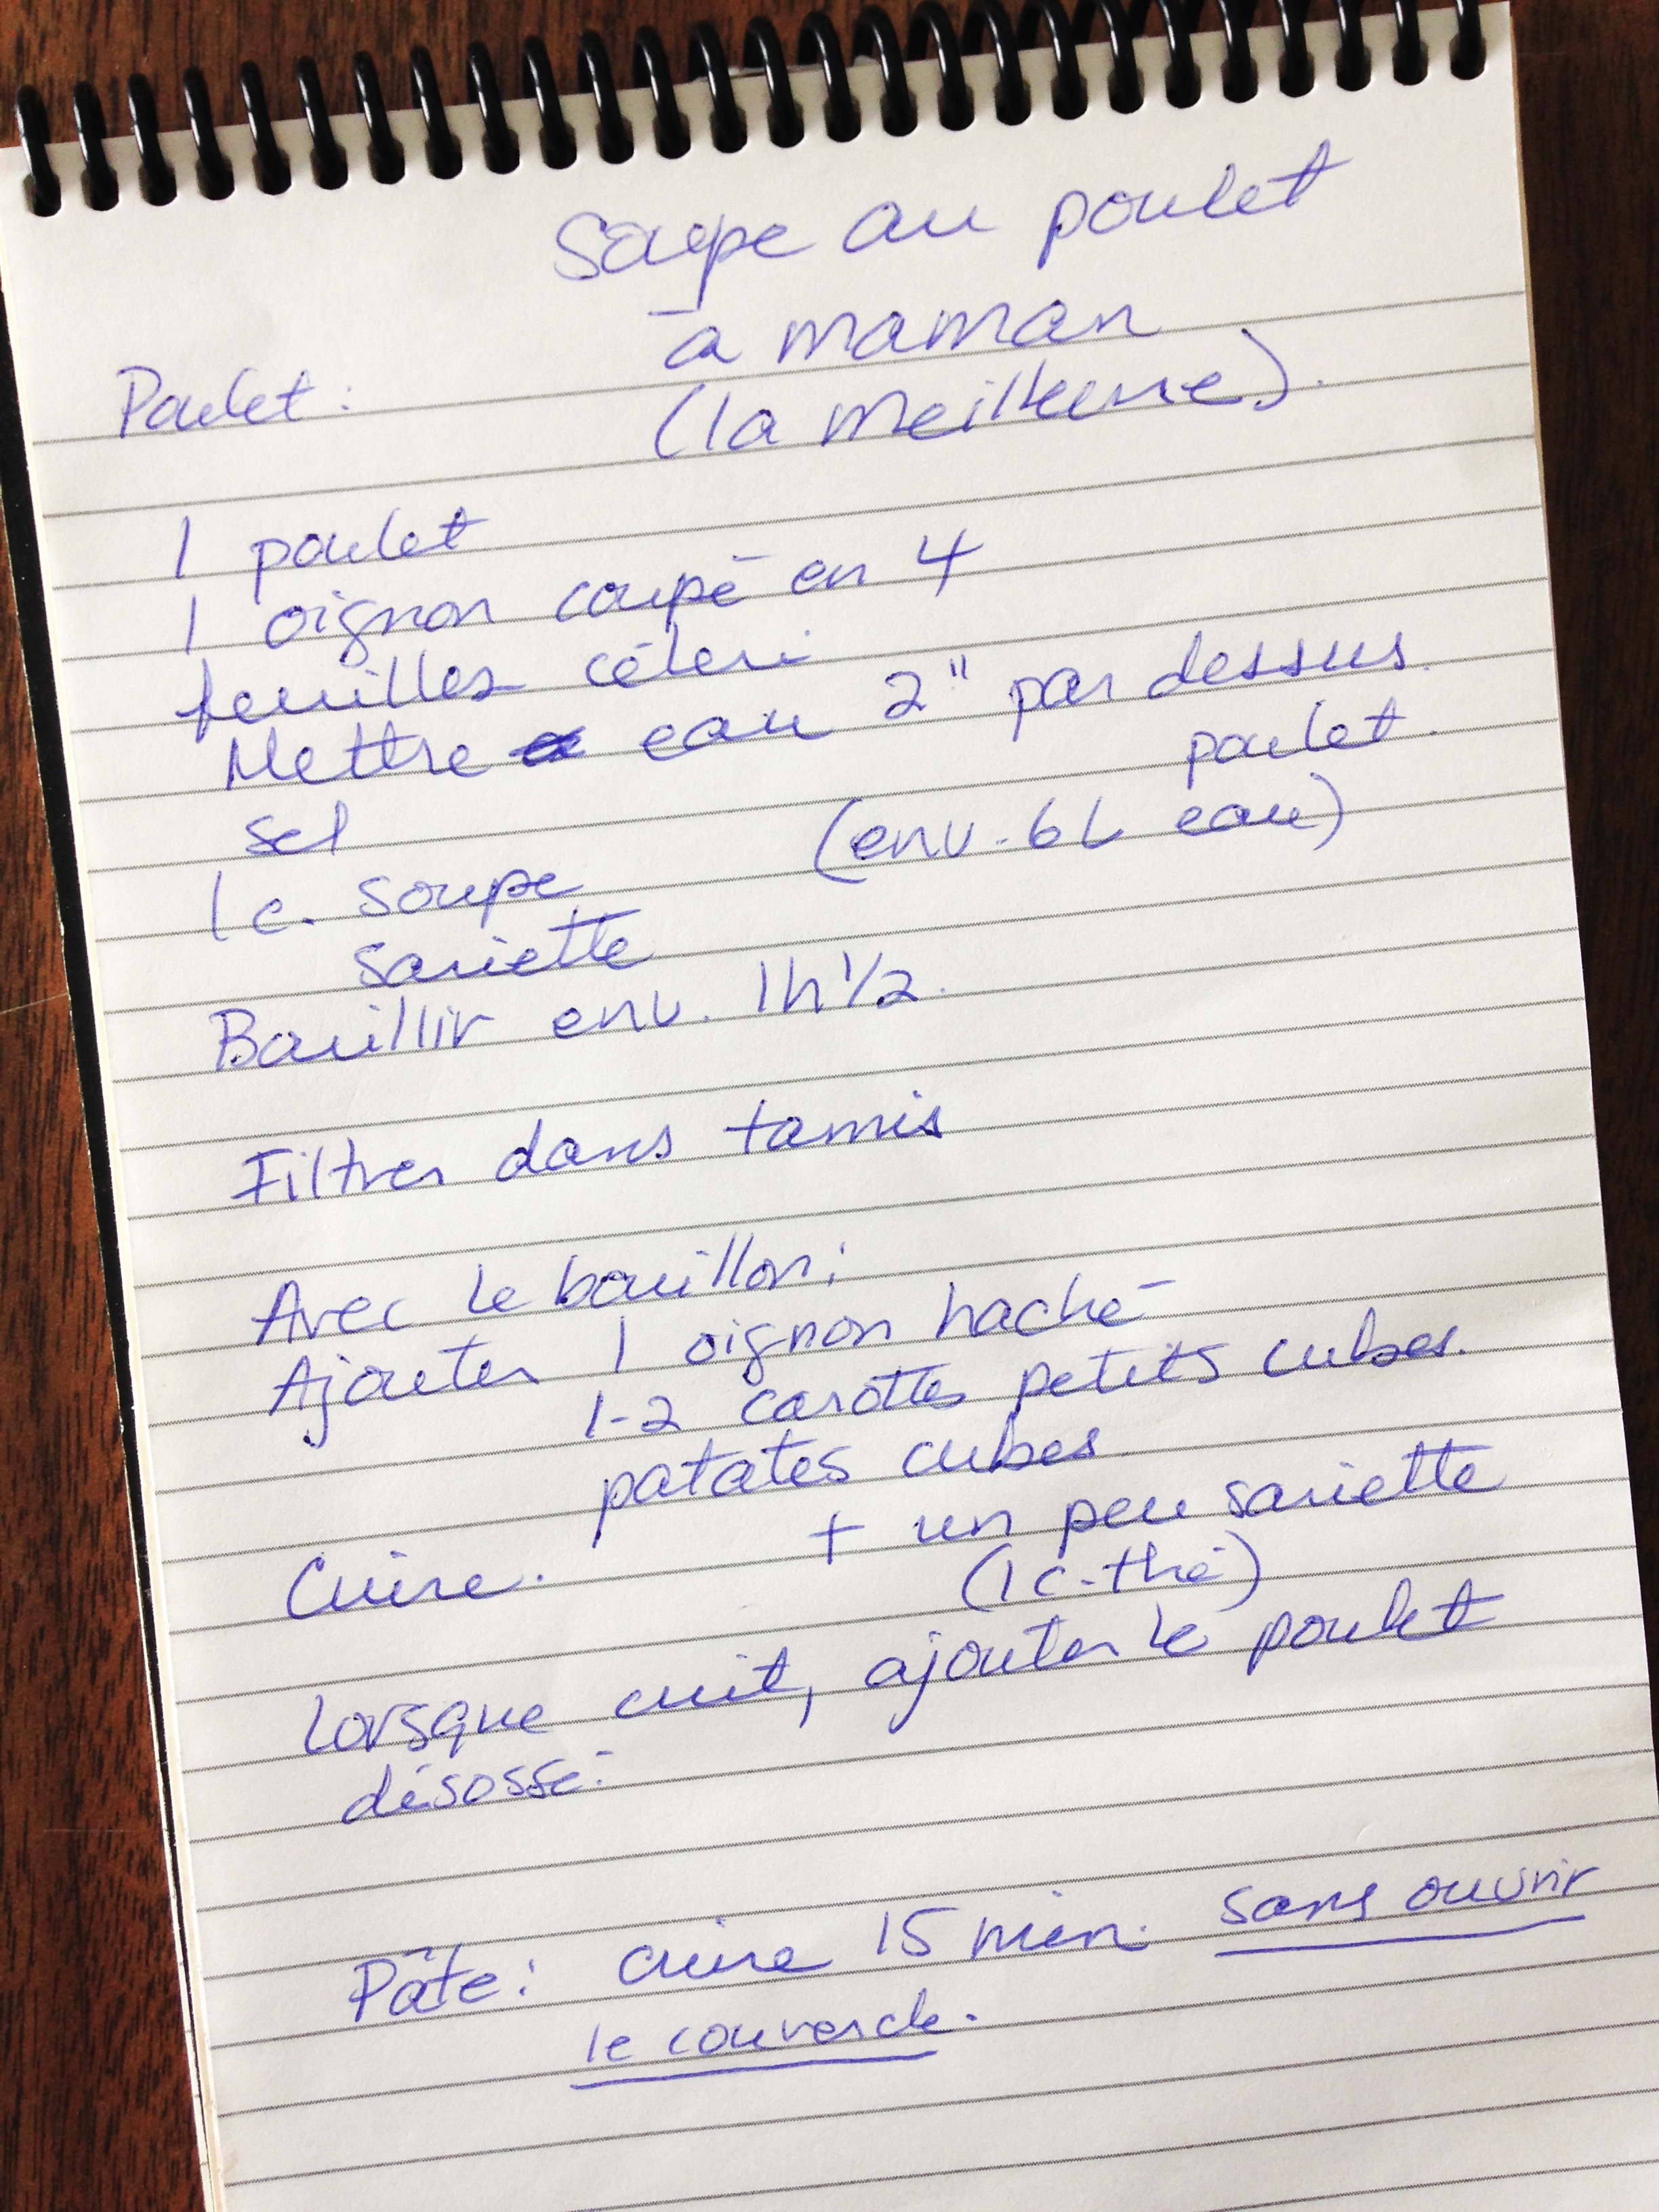 Soupe au poulet
à maman
(la meilleure).
Poulet:
1 poulet
1 oignon coupé en 4
feuilles céleri
Mettre eau 2" par dessus
poulet.
(env. 6L eau)
sel
1 c. soupe
sariette
Bouillir env. 1h 1/2.
Filtrer dans tamis
Avec le bouillon:
Ajouter 1 oignon haché
1-2 carottes petits cubes.
patates cubes
+ un peu sariette
(1 c. thé)
Cuire.
Lorsque cuit, ajouter le poulet
désossé.
Pâte: cuire 15 min. sans ouvrir
le couvercle.